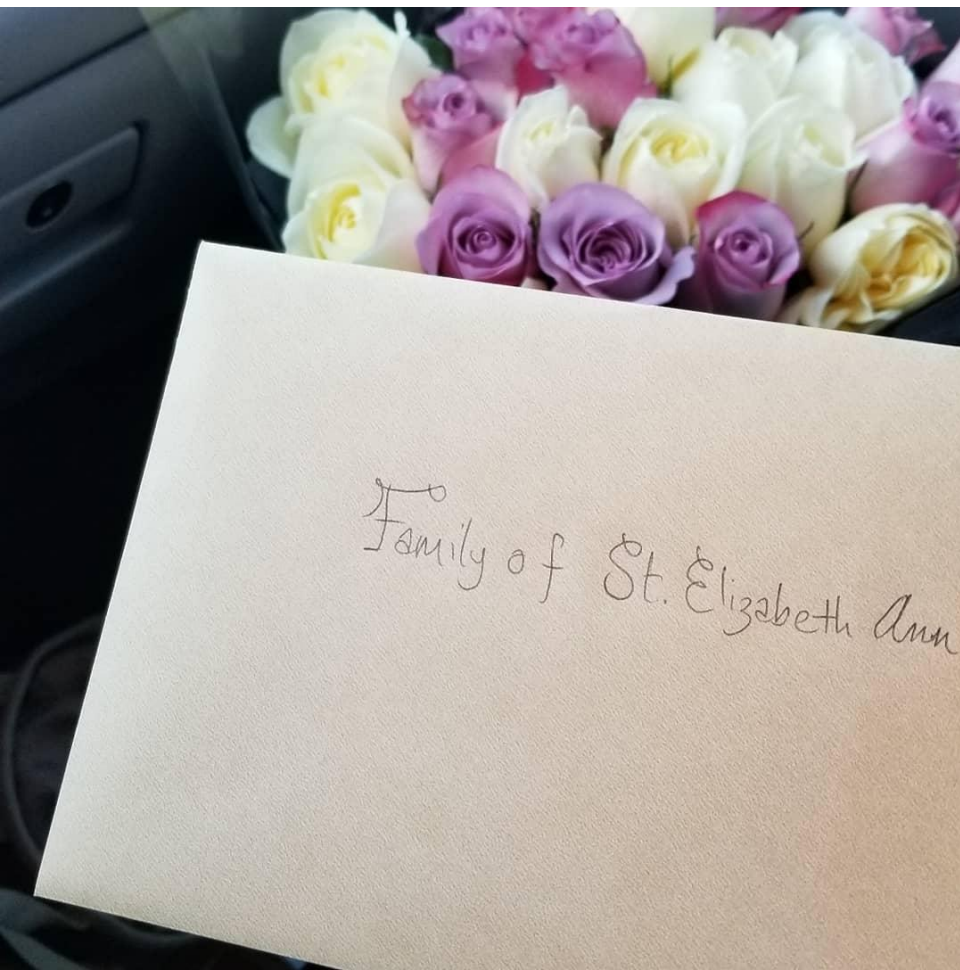 Family of St. Elizabeth Ann